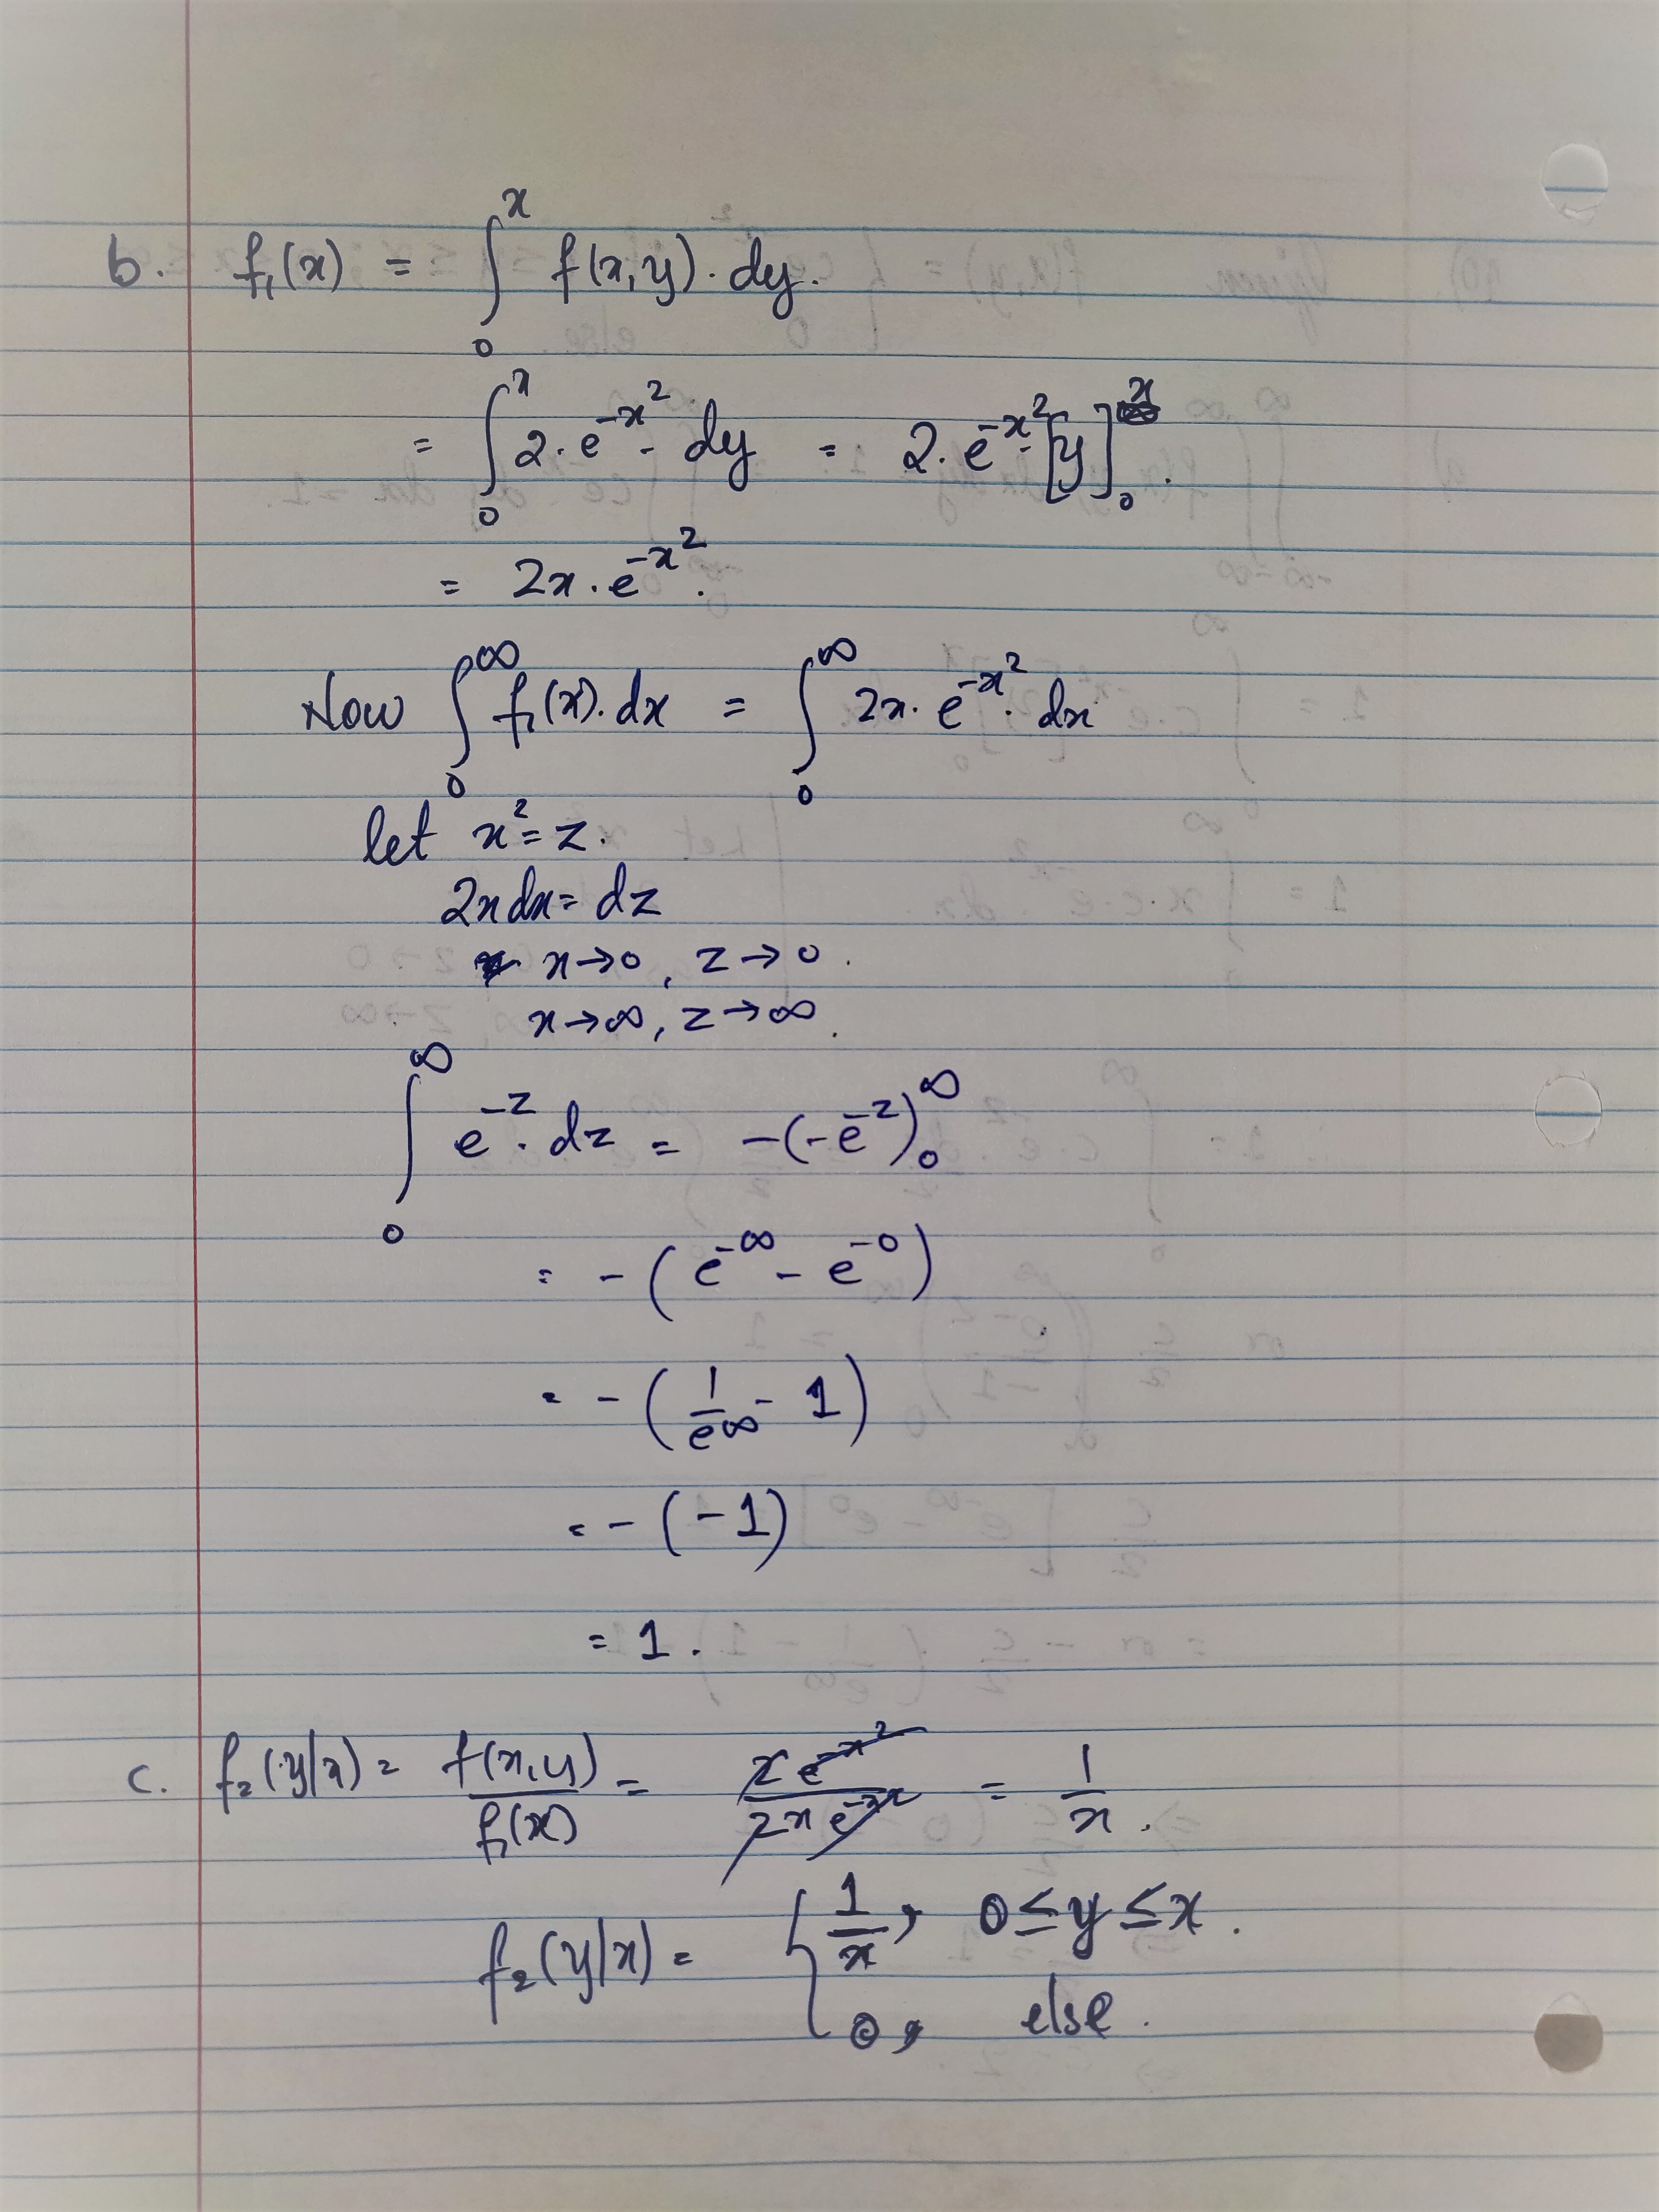 b. f₁(x) = ∫₀ˣ f(x,y). dy.
= ∫₀ˣ 2. e^(-x²). dy = 2. e^(-x²). [y]₀ˣ.
= 2x. e^(-x²).
Now ∫₀^∞ f₁(x). dx = ∫₀^∞ 2x. e^(-x²). dx
let x² = z.
2x dx = dz
x→0, z→0.
x→∞, z→∞.
∫₀^∞ e^(-z). dz = -(-e^(-z))₀^∞
= - (e^(-∞) - e^(-0))
= - (1/e^∞ - 1)
= - (-1)
= 1.
c. f₂(y|x) = f(x,y)/f₁(x) = 2e^(-x²)/2x e^(-x²) = 1/x.
f₂(y|x) = { 1/x, 0 ≤ y ≤ x.
0, else.